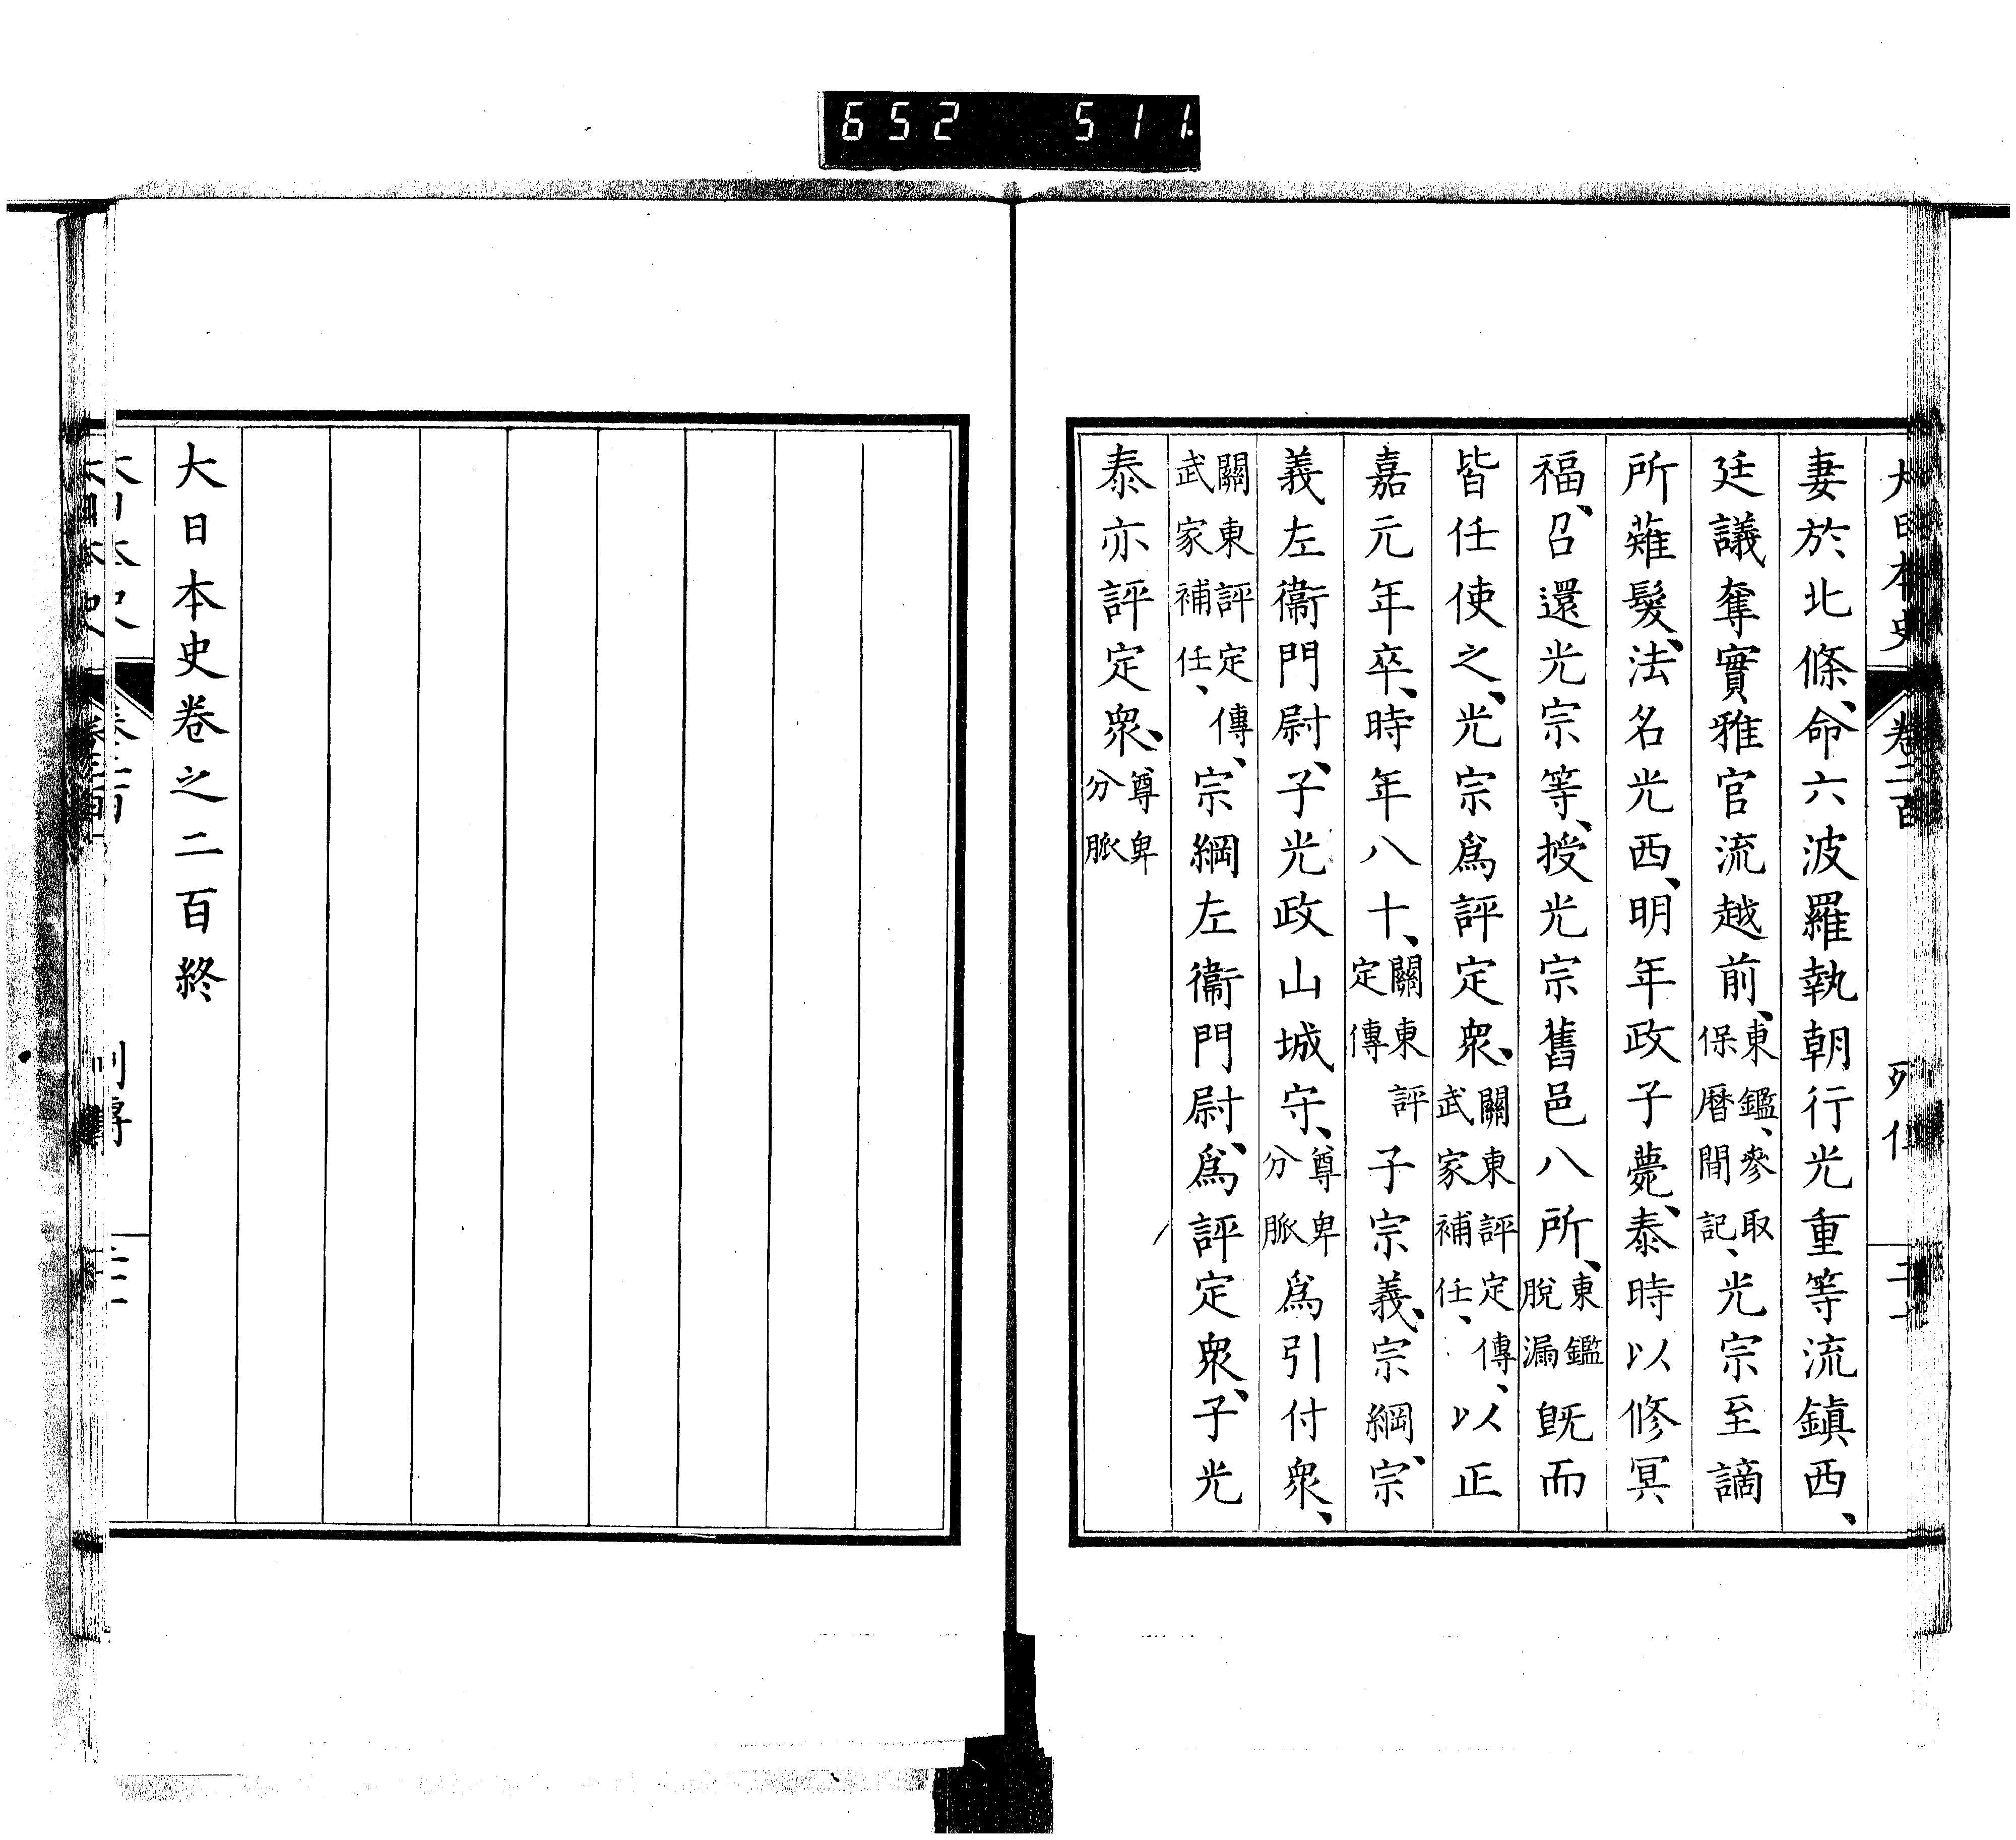 652 511.
大日本史 卷二百 列傳
妻於北條、命六波羅執朝行光重等流鎮西、
廷議奪實雅官流越前、東鑑、參取保曆間記、光宗至謫
所薙髮、法名光西、明年政子薨、泰時以修冥
福、召還光宗等、授光宗舊邑八所、東鑑脫漏既而
皆任使之、光宗爲評定衆、關東評定傳、武家補任、以正
嘉元年卒、時年八十、關東評定傳子宗義、宗綱、宗
義左衞門尉、子光政山城守、尊卑分脈爲引付衆、
關東評定傳、武家補任、宗綱左衞門尉、爲評定衆、子光
泰亦評定衆、尊卑分脈
大日本史卷之二百終